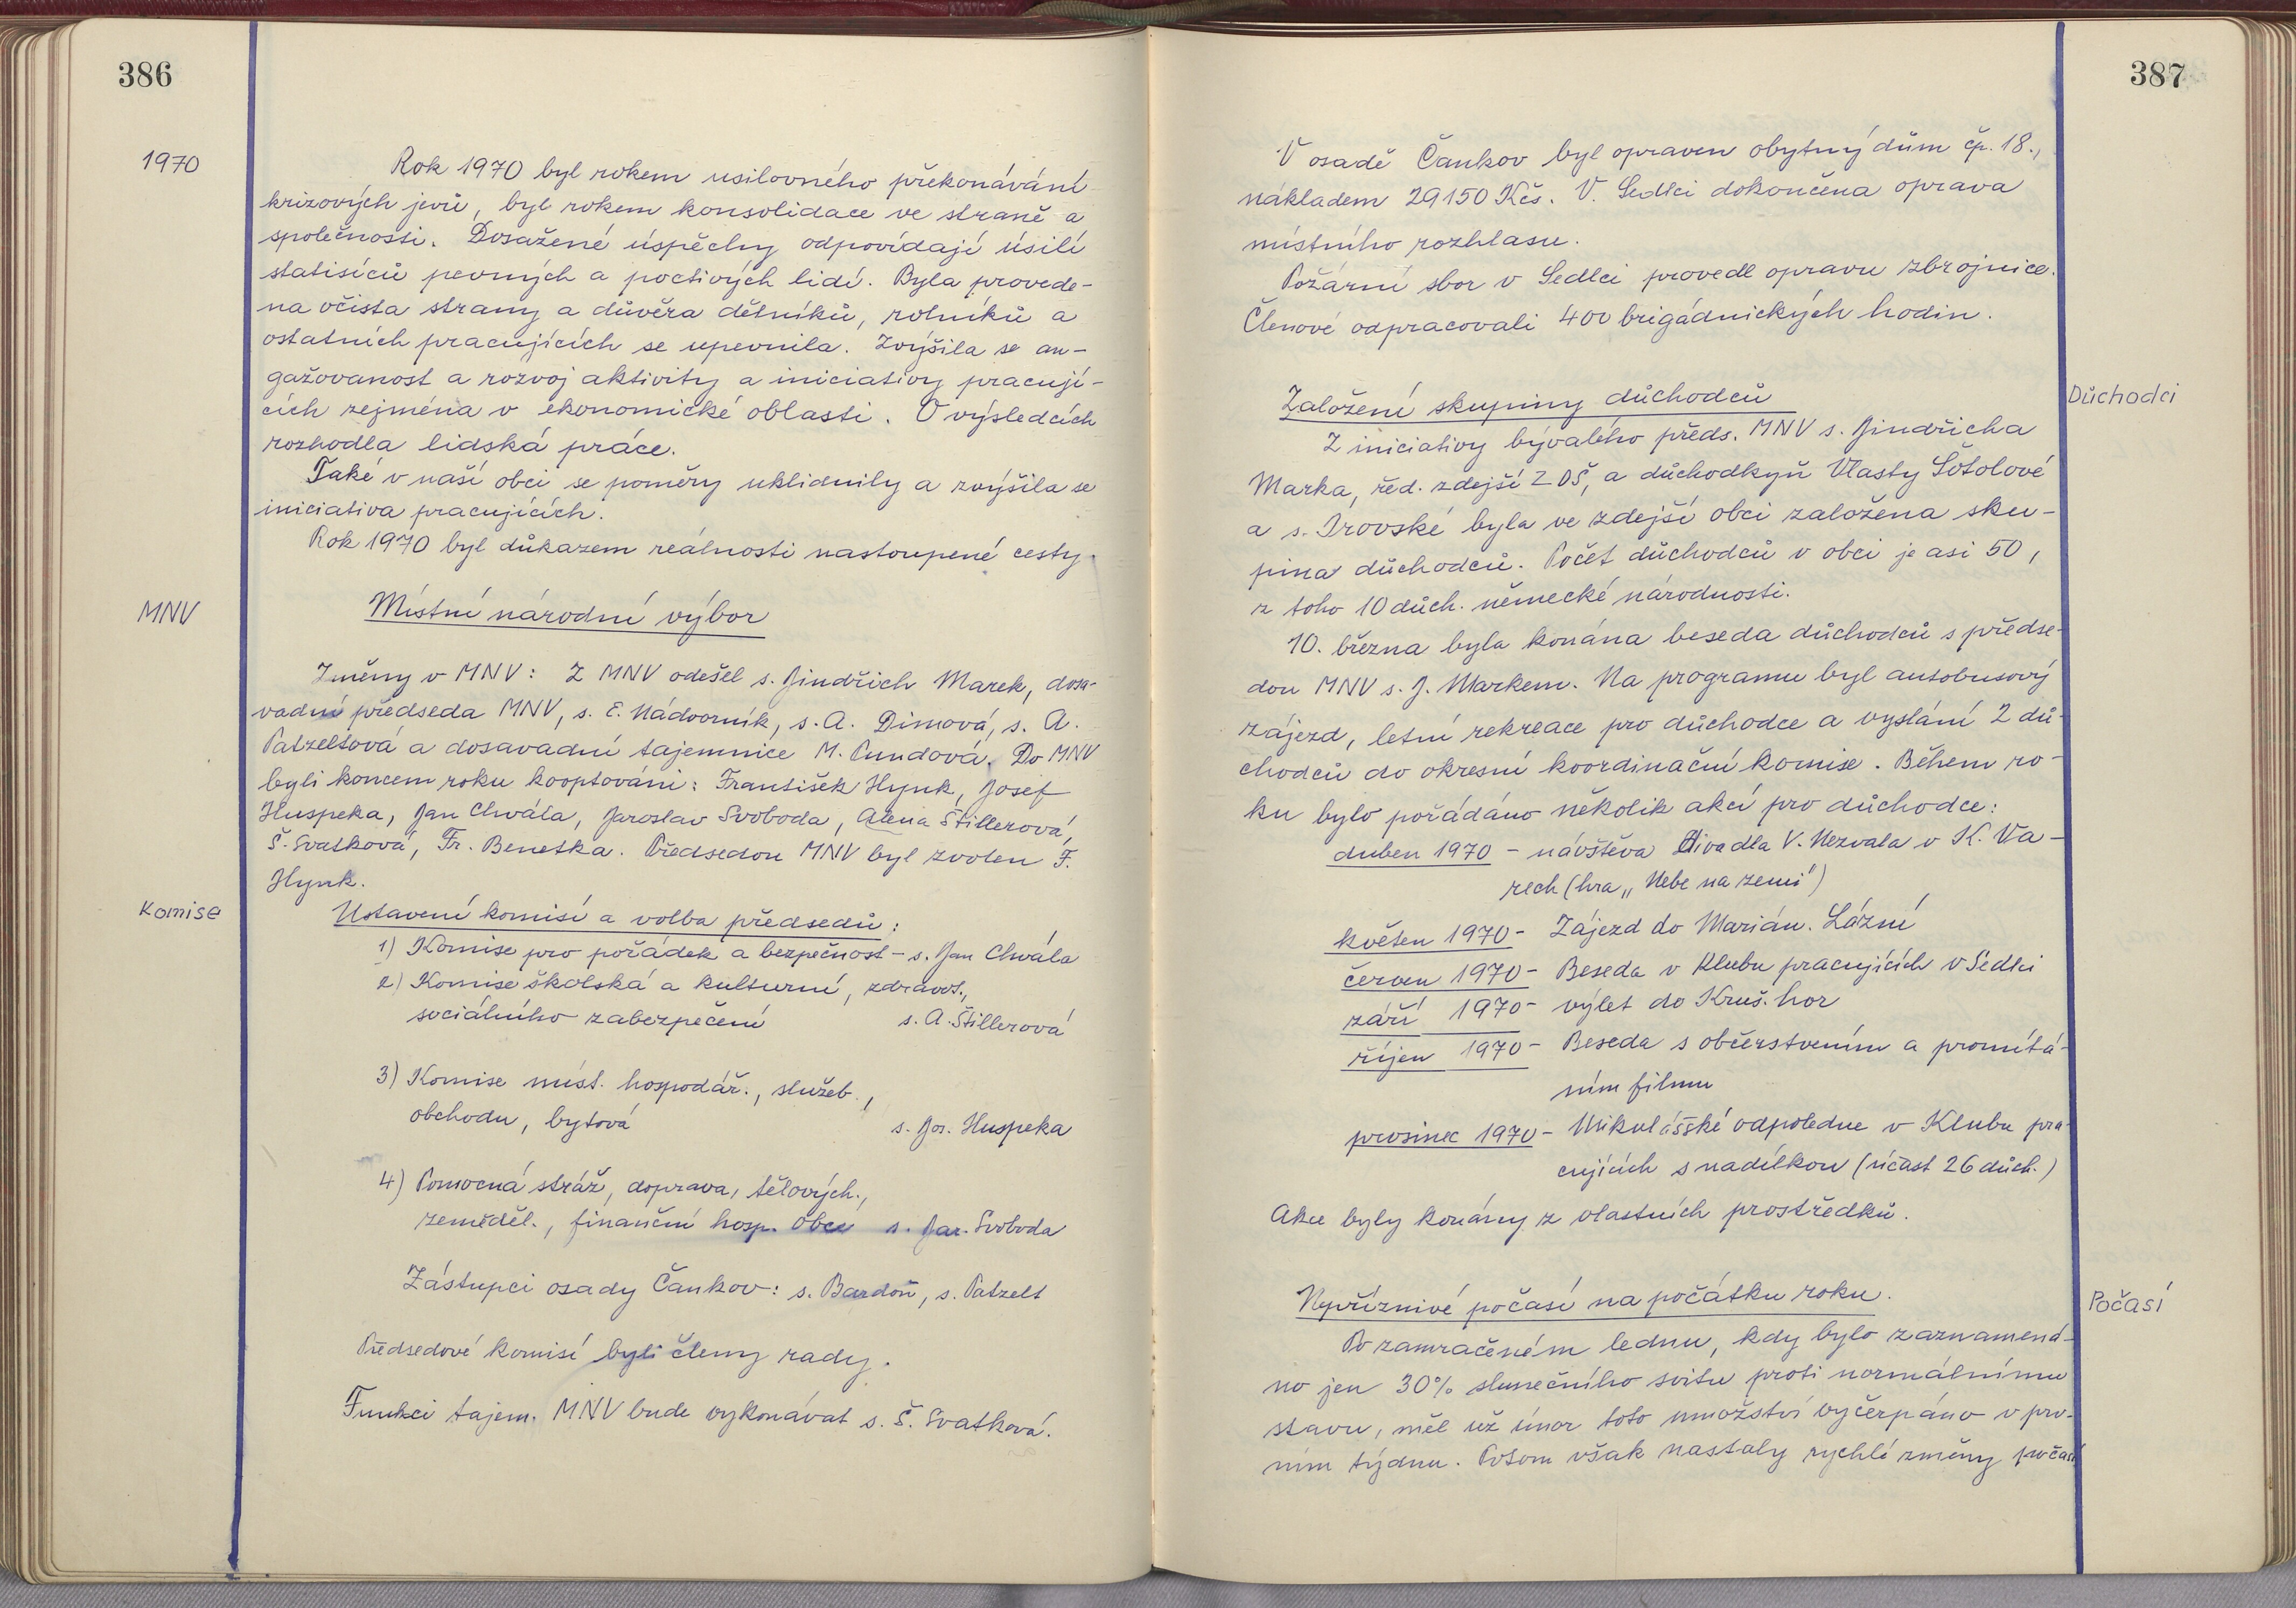 386
1970
Rok 1970 byl rokem usilovného překonávání
krizových jevů, byl rokem konsolidace ve straně a
společnosti. Dosažené úspěchy odpovídají úsilí
statisíců pevných a poctivých lidí. Byla provede-
na očista strany a důvěra dělníků, rolníků a
ostatních pracujících se upevnila. Zvýšila se an-
gažovanost a rozvoj aktivity a iniciativy pracují-
cích zejména v ekonomické oblasti. O výsledcích
rozhodla lidská práce.
Také v naší obci se poměry uklidnily a zvýšila se
iniciativa pracujících.
Rok 1970 byl důkazem reálnosti nastoupené cesty.
MNV
Místní národní výbor
Změny v MNV: Z MNV odešel s. Jindřich Marek, dosa-
vadní předseda MNV, s. E. Nádvorník, s. A. Dimová, s. A.
Patzeltová a dosavadní tajemnice M. Pundová. Do MNV
byli koncem roku kooptováni: František Hynk, Josef
Huspeka, Jan Chvála, Jaroslav Svoboda, Alena Štillerová,
Š. Svatková, Fr. Benetka. Předsedou MNV byl zvolen F.
Hynk.
Komise
Ustavení komisí a volba předsedů:
1) Komise pro pořádek a bezpečnost - s. Jan Chvála
2) Komise školská a kulturní, zdravot.,
sociálního zabezpečení s. A. Štillerová
3) Komise míst. hospodář., služeb.,
obchodu, bytová s. Jos. Huspeka
4) Pomocná stráž, doprava, tělových.,
zeměděl., finanční hosp. obce s. Jar. Svoboda
Zástupci osady Čankov: s. Bardoň, s. Patzelt
Předsedové komisí byli členy rady.
Funkci tajem. MNV bude vykonávat s. Š. Svatková.
387
V osadě Čankov byl opraven obytný dům čp. 18.,
nákladem 29150 Kčs. V. Sedlci dokončena oprava
místního rozhlasu.
Požární sbor v Sedlci provedl opravu zbrojnice.
Členové odpracovali 400 brigádnických hodin.
Důchodci
Založení skupiny důchodců
Z iniciativy bývalého předs. MNV s. Jindřicha
Marka, řed. zdejší ZDŠ, a důchodkyň Vlasty Šotolové
a s. Irovské byla ve zdejší obci založena sku-
pina důchodců. Počet důchodců v obci je asi 50,
z toho 10 důch. německé národnosti.
10. března byla konána beseda důchodců s předse-
dou MNV s. J. Markem. Na programu byl autobusový
zájezd, letní rekreace pro důchodce a vyslání 2 dů-
chodců do okresní koordinační komise. Během ro-
ku bylo pořádáno několik akcí pro důchodce:
duben 1970 - návštěva Divadla V. Nezvala v K. Va-
rech (hra „Nebe na zemi")
květen 1970 - Zájezd do Marián. Lázní
červen 1970 - Beseda v Klubu pracujících v Sedlci
září 1970 - výlet do Kruš. hor
říjen 1970 - Beseda s občerstvením a promítá-
ním filmu
prosinec 1970 - Mikulášské odpoledne v Klubu pra-
cujících s nadílkou (účast 26 důch.)
Akce byly konány z vlastních prostředků.
Počasí
Nepříznivé počasí na počátku roku.
Po zamračeném lednu, kdy bylo zaznamená-
no jen 30% slunečního svitu proti normálnímu
stavu, měl už únor toto množství vyčerpáno v prv-
ním týdnu. Potom však nastaly rychlé změny počasí